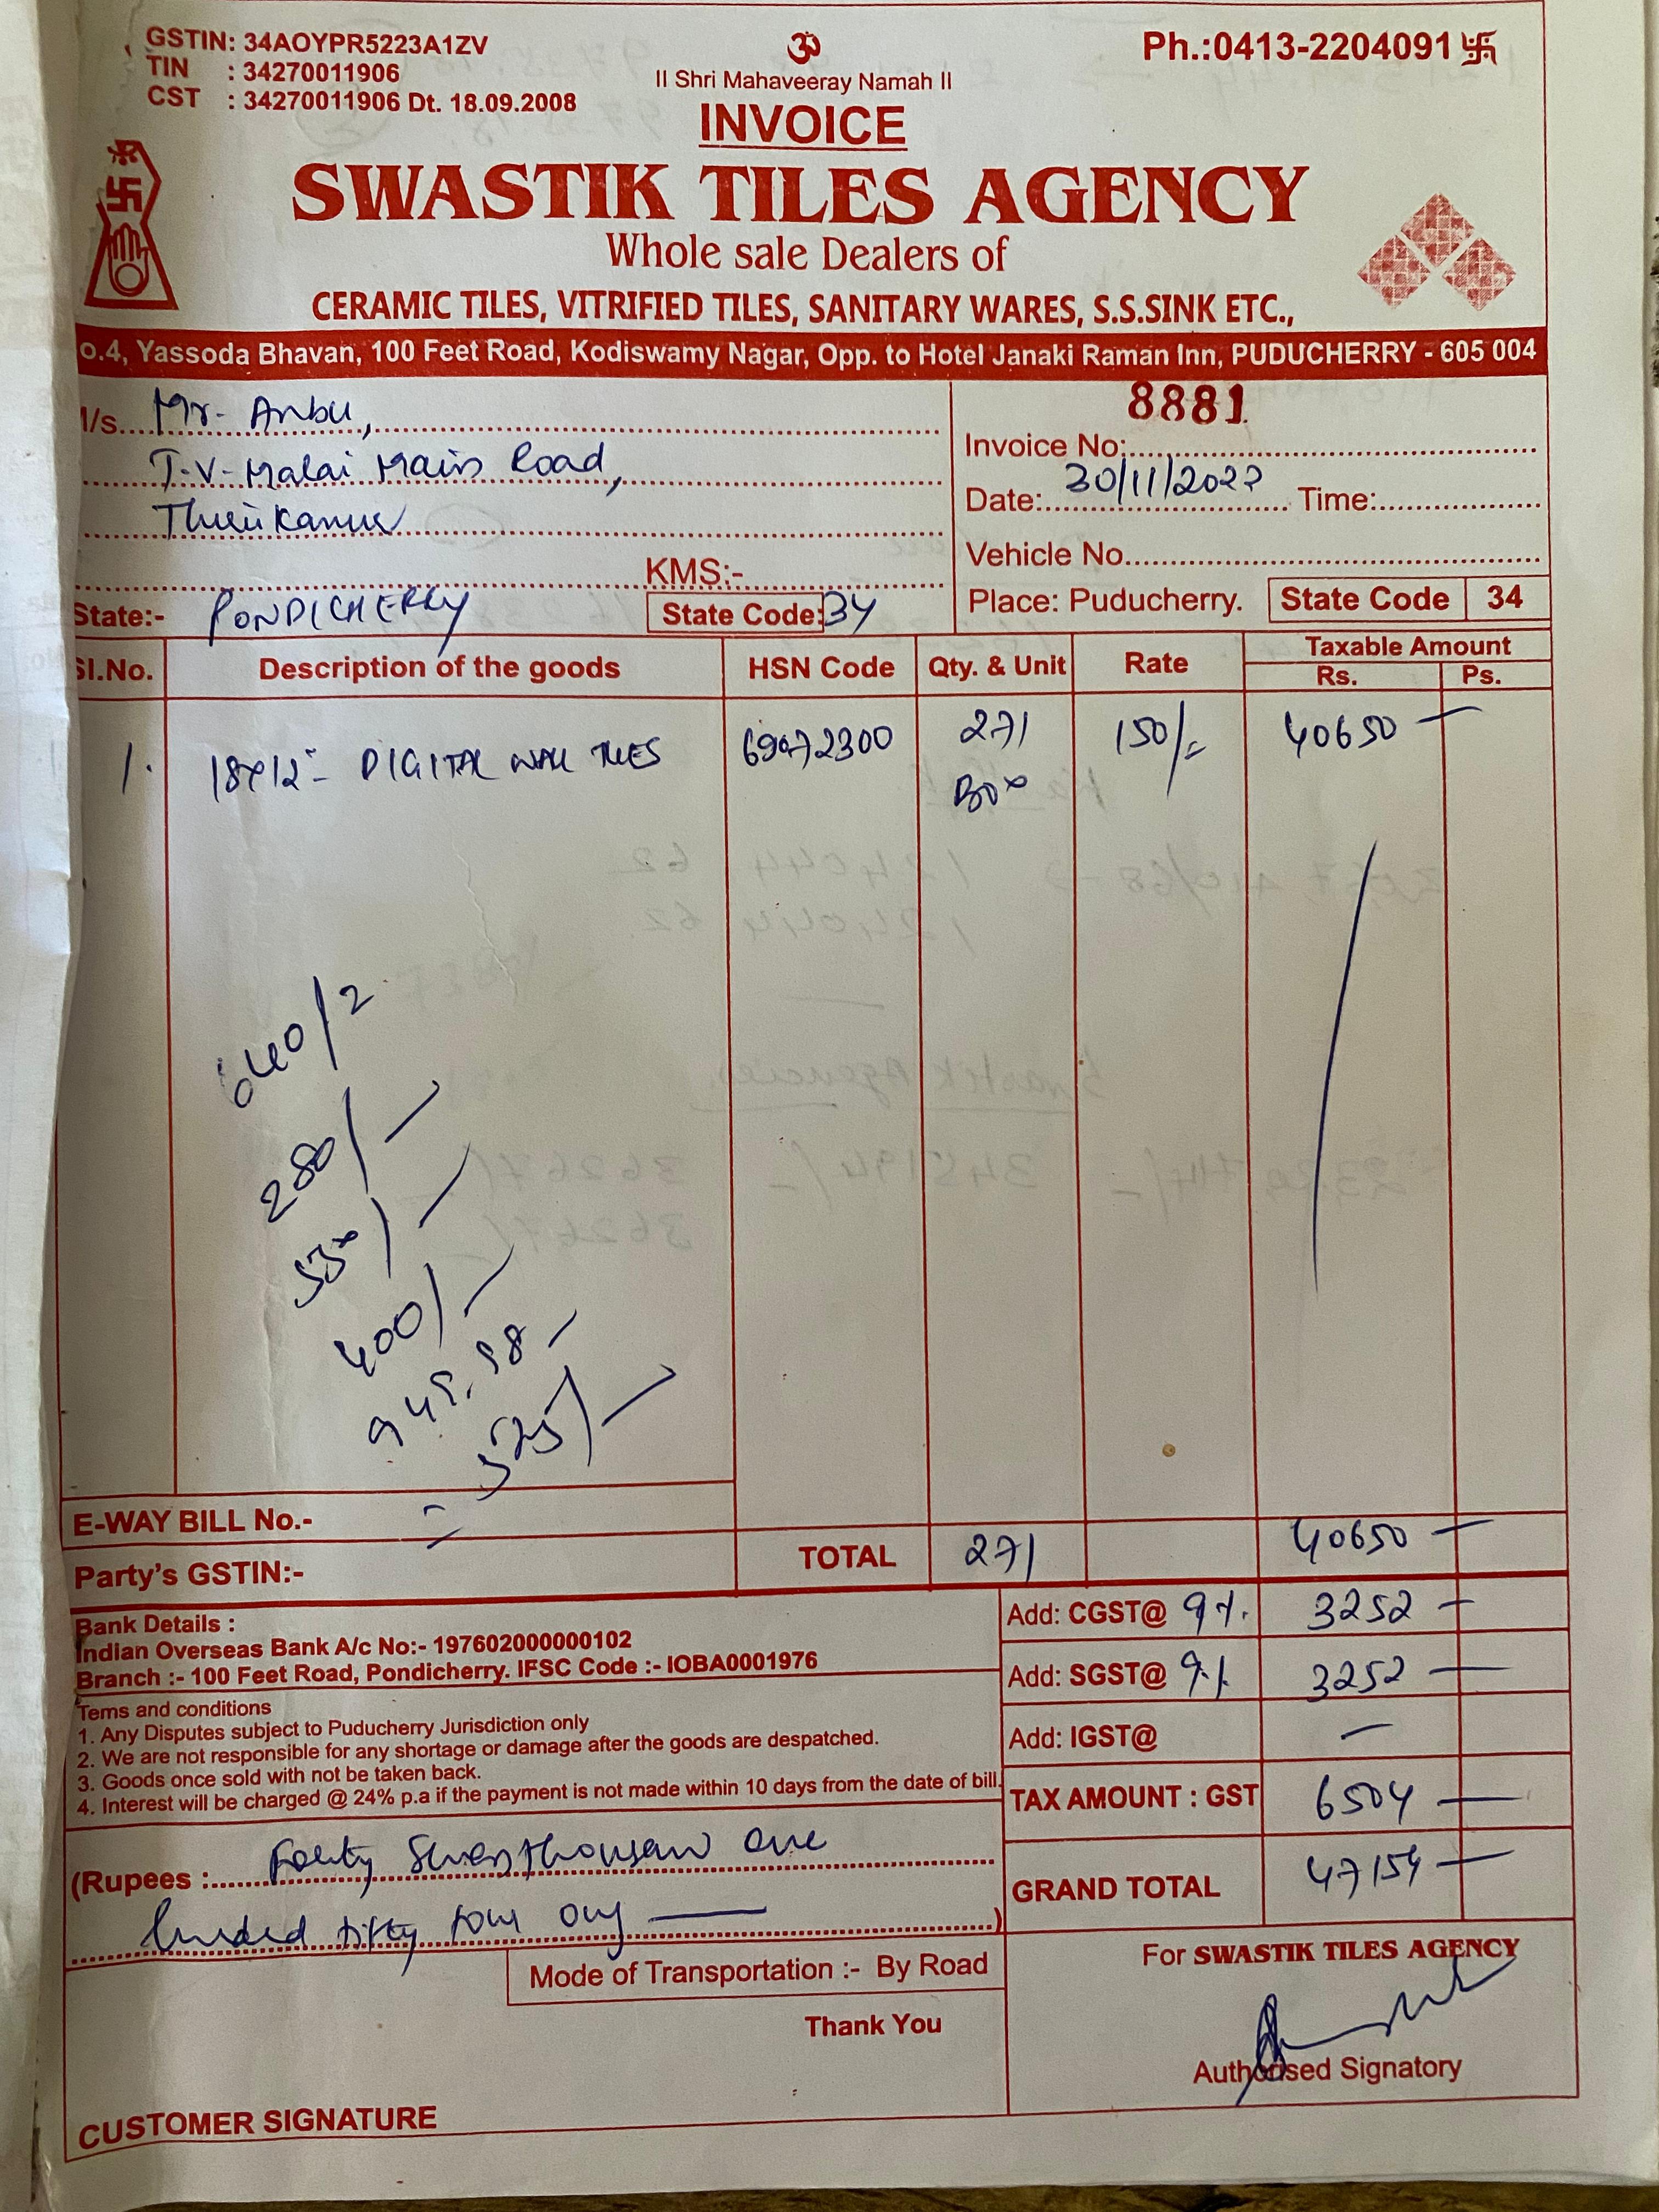 GSTIN: 34AOYPR5223A1ZV
TIN : 34270011906
CST : 34270011906 Dt. 18.09.2008
ॐ
II Shri Mahaveeray Namah II
Ph.:0413-2204091 卐
INVOICE
SWASTIK TILES AGENCY
Whole sale Dealers of
CERAMIC TILES, VITRIFIED TILES, SANITARY WARES, S.S.SINK ETC.,
o.4, Yassoda Bhavan, 100 Feet Road, Kodiswamy Nagar, Opp. to Hotel Janaki Raman Inn, PUDUCHERRY - 605 004
/s. Mr. Anbu,
T.V. Malai Main Road,
Thirukanur
KMS:-
State:- PONDICHERRY State Code: 34
8881
Invoice No:
Date: 30/11/2022 Time:
Vehicle No.
Place: Puducherry. State Code 34
Sl.No. Description of the goods HSN Code Qty. & Unit Rate Taxable Amount
Rs. Ps.
1. 18x12" DIGITAL WALL TILES 69072300 271 Box 150/- 40650 —
640/2
280/—
400/—
945.98 —
= 525/—
E-WAY BILL No.-
Party's GSTIN:-
TOTAL 271 40650 —
Bank Details :
Indian Overseas Bank A/c No:- 197602000000102
Branch :- 100 Feet Road, Pondicherry. IFSC Code :- IOBA0001976
Tems and conditions
1. Any Disputes subject to Puducherry Jurisdiction only
2. We are not responsible for any shortage or damage after the goods are despatched.
3. Goods once sold with not be taken back.
4. Interest will be charged @ 24% p.a if the payment is not made within 10 days from the date of bill.
Add: CGST@ 9%. 3252 —
Add: SGST@ 9% 3252 —
Add: IGST@ —
TAX AMOUNT : GST 6504 —
GRAND TOTAL 47154 —
(Rupees : Forty Seven thousand one
hundred fifty four only —)
Mode of Transportation :- By Road
Thank You
For SWASTIK TILES AGENCY
Authorised Signatory
CUSTOMER SIGNATURE